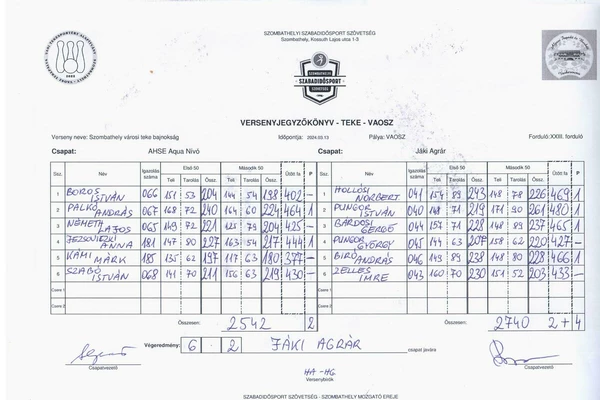 SZOMBATHELYI SZABADIDŐSPORT SZÖVETSÉG
Szombathely, Kossuth Lajos utca 1-3
SZOMBATHELYI
SZABADIDŐSPORT
SZÖVETSÉG
VERSENYJEGYZŐKÖNYV - TEKE - VAOSZ
Verseny neve: Szombathely városi teke bajnokság Időpontja: 2024.03.13 Pálya: VAOSZ Forduló:XXIII. forduló
Csapat: AHSE Aqua Nivó Csapat: Jáki Agrár
Ssz. Név Igazolás száma Első 50 Második 50 Ütött fa P Ssz. Név Igazolás száma Első 50 Második 50 Ütött fa P
Teli Tarolás Össz. Teli Tarolás Össz. Teli Tarolás Össz. Teli Tarolás Össz.
1 BOROS ISTVÁN 066 151 53 204 144 54 198 402 — 1 HOLLÓSI NORBERT 041 154 89 243 148 78 226 469 1
2 PALKÓ ANDRÁS 067 168 72 240 164 60 224 464 1 2 PUNGOR ISTVÁN 040 148 71 219 171 90 261 480 1
3 NÉMETH LAJOS 065 149 72 221 125 79 204 425 — 3 BÁRDOSI GERGŐ 044 157 71 228 148 89 237 465 1
4 ANNA 181 147 80 227 163 54 217 444 1 4 PUNGOR GYÖRGY 045 144 63 207 158 62 220 427 —
5 KÁMI MÁRK 185 135 62 197 117 63 180 377 — 5 BIRÓ ANDRÁS 046 149 89 238 148 80 228 466 1
6 SZABÓ ISTVÁN 068 141 70 211 156 63 219 430 — 6 ZELLES IMRE 043 160 70 230 151 52 203 433 —
Csere 1 Csere 1
Csere 2 Csere 2
Összesen: 2542 2 Összesen: 2740 2+4
Végeredmény: 6 - 2 JÁKI AGRÁR csapat javára
Csapatvezető Csapatvezető
HA - HG
Versenybírók
SZABADIDŐSPORT SZÖVETSÉG - SZOMBATHELY MOZGATÓ EREJE